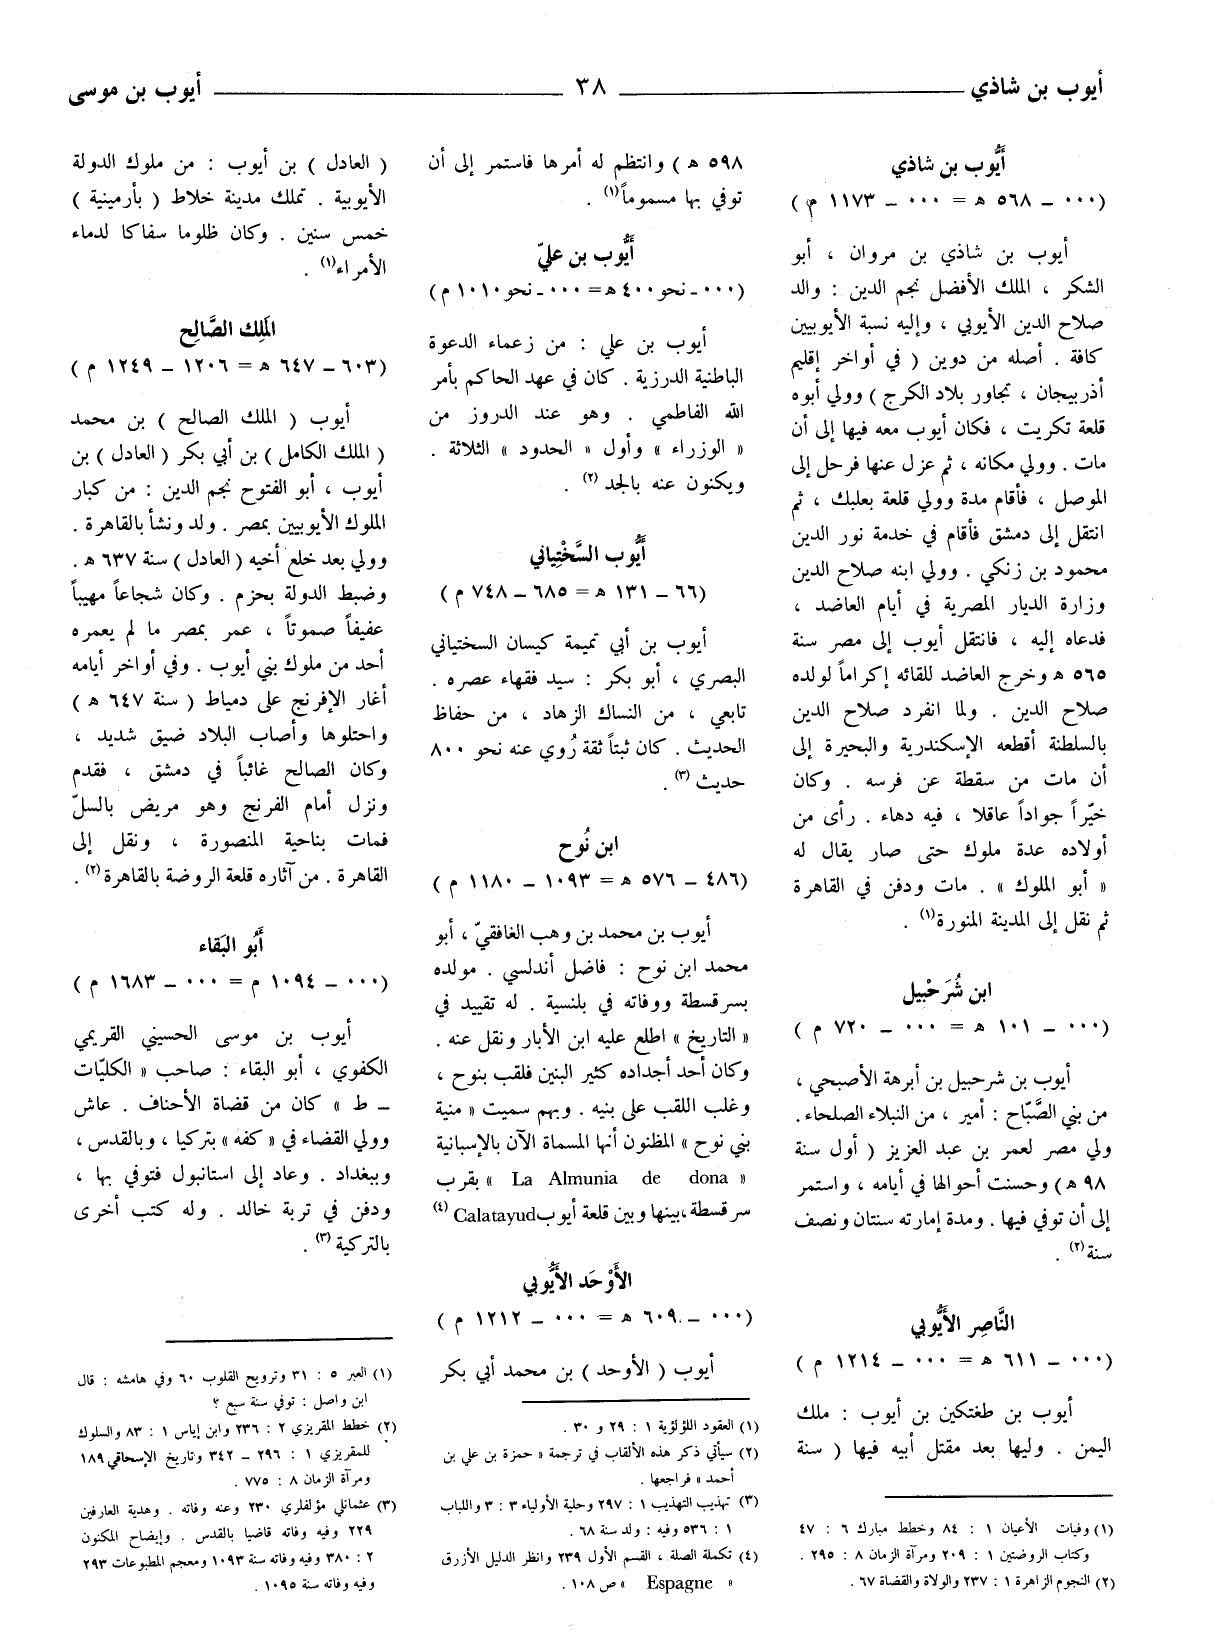 أيوب بن شاذي ٣٨ أيوب بن موسى
أَيُّوب بن شاذي
(٠٠٠ - ٥٦٨ ه = ٠٠٠ - ١١٧٣ م)
أيوب بن شاذي بن مروان ، أبو
الشكر ، الملك الأفضل نجم الدين : والد
صلاح الدين الأيوبي ، وإليه نسبة الأيوبيين
كافة . أصله من دوين ( في أواخر إقليم
أذربيجان ، تجاور بلاد الكرج ) وولي أبوه
قلعة تكريت ، فكان أيوب معه فيها إلى أن
مات . وولي مكانه ، ثم عزل عنها فرحل إلى
الموصل ، فأقام مدة وولي قلعة بعلبك ، ثم
انتقل إلى دمشق فأقام في خدمة نور الدين
محمود بن زنكي . وولي ابنه صلاح الدين
وزارة الديار المصرية في أيام العاضد ،
فدعاه إليه ، فانتقل أيوب إلى مصر سنة
٥٦٥ ه وخرج العاضد للقائه إكراماً لولده
صلاح الدين . ولما انفرد صلاح الدين
بالسلطنة أقطعه الإسكندرية والبحيرة إلى
أن مات من سقطة عن فرسه . وكان
خيّراً جواداً عاقلا ، فيه دهاء . رأى من
أولاده عدة ملوك حتى صار يقال له
« أبو الملوك » . مات ودفن في القاهرة
ثم نقل إلى المدينة المنورة(١) .
ابن شُرَحْبيل
(٠٠٠ - ١٠١ ه = ٠٠٠ - ٧٢٠ م )
أيوب بن شرحبيل بن أبرهة الأصبحي ،
من بني الصَّبّاح : أمير ، من النبلاء الصلحاء .
ولي مصر لعمر بن عبد العزيز ( أول سنة
٩٨ ه ) وحسنت أحوالها في أيامه ، واستمر
إلى أن توفي فيها . ومدة إمارته سنتان ونصف
سنة(٢) .
النَّاصِر الأَيُّوبي
(٠٠٠ - ٦١١ ه = ٠٠٠ - ١٢١٤ م )
أيوب بن طغتكين بن أيوب : ملك
اليمن . وليها بعد مقتل أبيه فيها ( سنة
(١) وفيات الأعيان ١ : ٨٤ وخطط مبارك ٦ : ٤٧
وكتاب الروضتين ١ : ٢٠٩ ومرآة الزمان ٨ : ٢٩٥ .
(٢) النجوم الزاهرة ١ : ٢٣٧ والولاة والقضاة ٦٧ .
٥٩٨ ه ) وانتظم له أمرها فاستمر إلى أن
توفي بها مسموماً(١) .
أَيُّوب بن عليّ
(٠٠٠ - نحو ٤٠٠ ه = ٠٠٠ - نحو ١٠١٠ م)
أيوب بن علي : من زعماء الدعوة
الباطنية الدرزية . كان في عهد الحاكم بأمر
الله الفاطمي . وهو عند الدروز من
« الوزراء » وأول « الحدود » الثلاثة .
ويكنون عنه بالجد (٢) .
أَيُّوب السَّخْتِياني
(٦٦ - ١٣١ ه = ٦٨٥ - ٧٤٨ م )
أيوب بن أبي تميمة كيسان السختياني
البصري ، أبو بكر : سيد فقهاء عصره .
تابعي ، من النساك الزهاد ، من حفاظ
الحديث . كان ثبتاً ثقة رُوي عنه نحو ٨٠٠
حديث (٣) .
ابن نُوح
(٤٨٦ - ٥٧٦ ه = ١٠٩٣ - ١١٨٠ م )
أيوب بن محمد بن وهب الغافقيّ ، أبو
محمد ابن نوح : فاضل أندلسي . مولده
بسرقسطة ووفاته في بلنسية . له تقييد في
« التاريخ » اطلع عليه ابن الأبار ونقل عنه .
وكان أحد أجداده كثير البنين فلقب بنوح ،
وغلب اللقب على بنيه . وبهم سميت « منية
بني نوح » المظنون أنها المسماة الآن بالإسبانية
« La Almunia de dona » بقرب
سرقسطة ، بينها وبين قلعة أيوب Calatayud (٤)
الأَوْحَد الأَيُّوبي
(٠٠٠ - ٦٠٩ ه = ٠٠٠ - ١٢١٢ م )
أيوب ( الأوحد ) بن محمد أبي بكر
(١) العقود اللؤلؤية ١ : ٢٩ و ٣٠ .
(٢) سيأتي ذكر هذه الألقاب في ترجمة « حمزة بن علي بن
أحمد » فراجعها .
(٣) تهذيب التهذيب ١ : ٢٩٧ وحلية الأولياء ٣ : ٣ واللباب
١ : ٥٣٦ وفيه : ولد سنة ٦٨ .
(٤) تكملة الصلة ، القسم الأول ٢٣٩ وانظر الدليل الأزرق
« Espagne » ص ١٠٨ .
( العادل ) بن أيوب : من ملوك الدولة
الأيوبية . تملك مدينة خلاط ( بأرمينية )
خمس سنين . وكان ظلوما سفاكا لدماء
الأمراء(١) .
المَلِك الصَّالِح
(٦٠٣ - ٦٤٧ ه = ١٢٠٦ - ١٢٤٩ م )
أيوب ( الملك الصالح ) بن محمد
( الملك الكامل ) بن أبي بكر ( العادل ) بن
أيوب ، أبو الفتوح نجم الدين : من كبار
الملوك الأيوبيين بمصر . ولد ونشأ بالقاهرة .
وولي بعد خلع أخيه ( العادل ) سنة ٦٣٧ ه .
وضبط الدولة بحزم . وكان شجاعاً مهيباً
عفيفاً صموتاً ، عمر بمصر ما لم يعمره
أحد من ملوك بني أيوب . وفي أواخر أيامه
أغار الإفرنج على دمياط ( سنة ٦٤٧ ه )
واحتلوها وأصاب البلاد ضيق شديد ،
وكان الصالح غائباً في دمشق ، فقدم
ونزل أمام الفرنج وهو مريض بالسلّ
فمات بناحية المنصورة ، ونقل إلى
القاهرة . من آثاره قلعة الروضة بالقاهرة(٢) .
أَبُو البَقاء
(٠٠٠ - ١٠٩٤ م = ٠٠٠ - ١٦٨٣ م )
أيوب بن موسى الحسيني القريمي
الكفوي ، أبو البقاء : صاحب « الكليّات
- ط » كان من قضاة الأحناف . عاش
وولي القضاء في « كفه » بتركيا ، وبالقدس ،
وببغداد . وعاد إلى استانبول فتوفي بها ،
ودفن في تربة خالد . وله كتب أخرى
بالتركية (٣) .
(١) العبر ٥ : ٣١ وترويح القلوب ٦٠ وفي هامشه : قال
ابن واصل : توفي سنة سبع ؟
(٢) خطط المقريزي ٢ : ٢٣٦ وابن إياس ١ : ٨٣ والسلوك
للمقريزي ١ : ٢٩٦ - ٣٤٢ وتاريخ الإسحاقي ١٨٩
ومرآة الزمان ٨ : ٧٧٥ .
(٣) عثمانلي مؤلفلري ٢٣٠ وعنه وفاته . وهدية العارفين
٢٢٩ وفيه وفاته قاضيا بالقدس . وإيضاح المكنون
٢ : ٣٨٠ وفيه وفاته سنة ١٠٩٣ ومعجم المطبوعات ٢٩٣
وفيه وفاته سنة ١٠٩٥ .